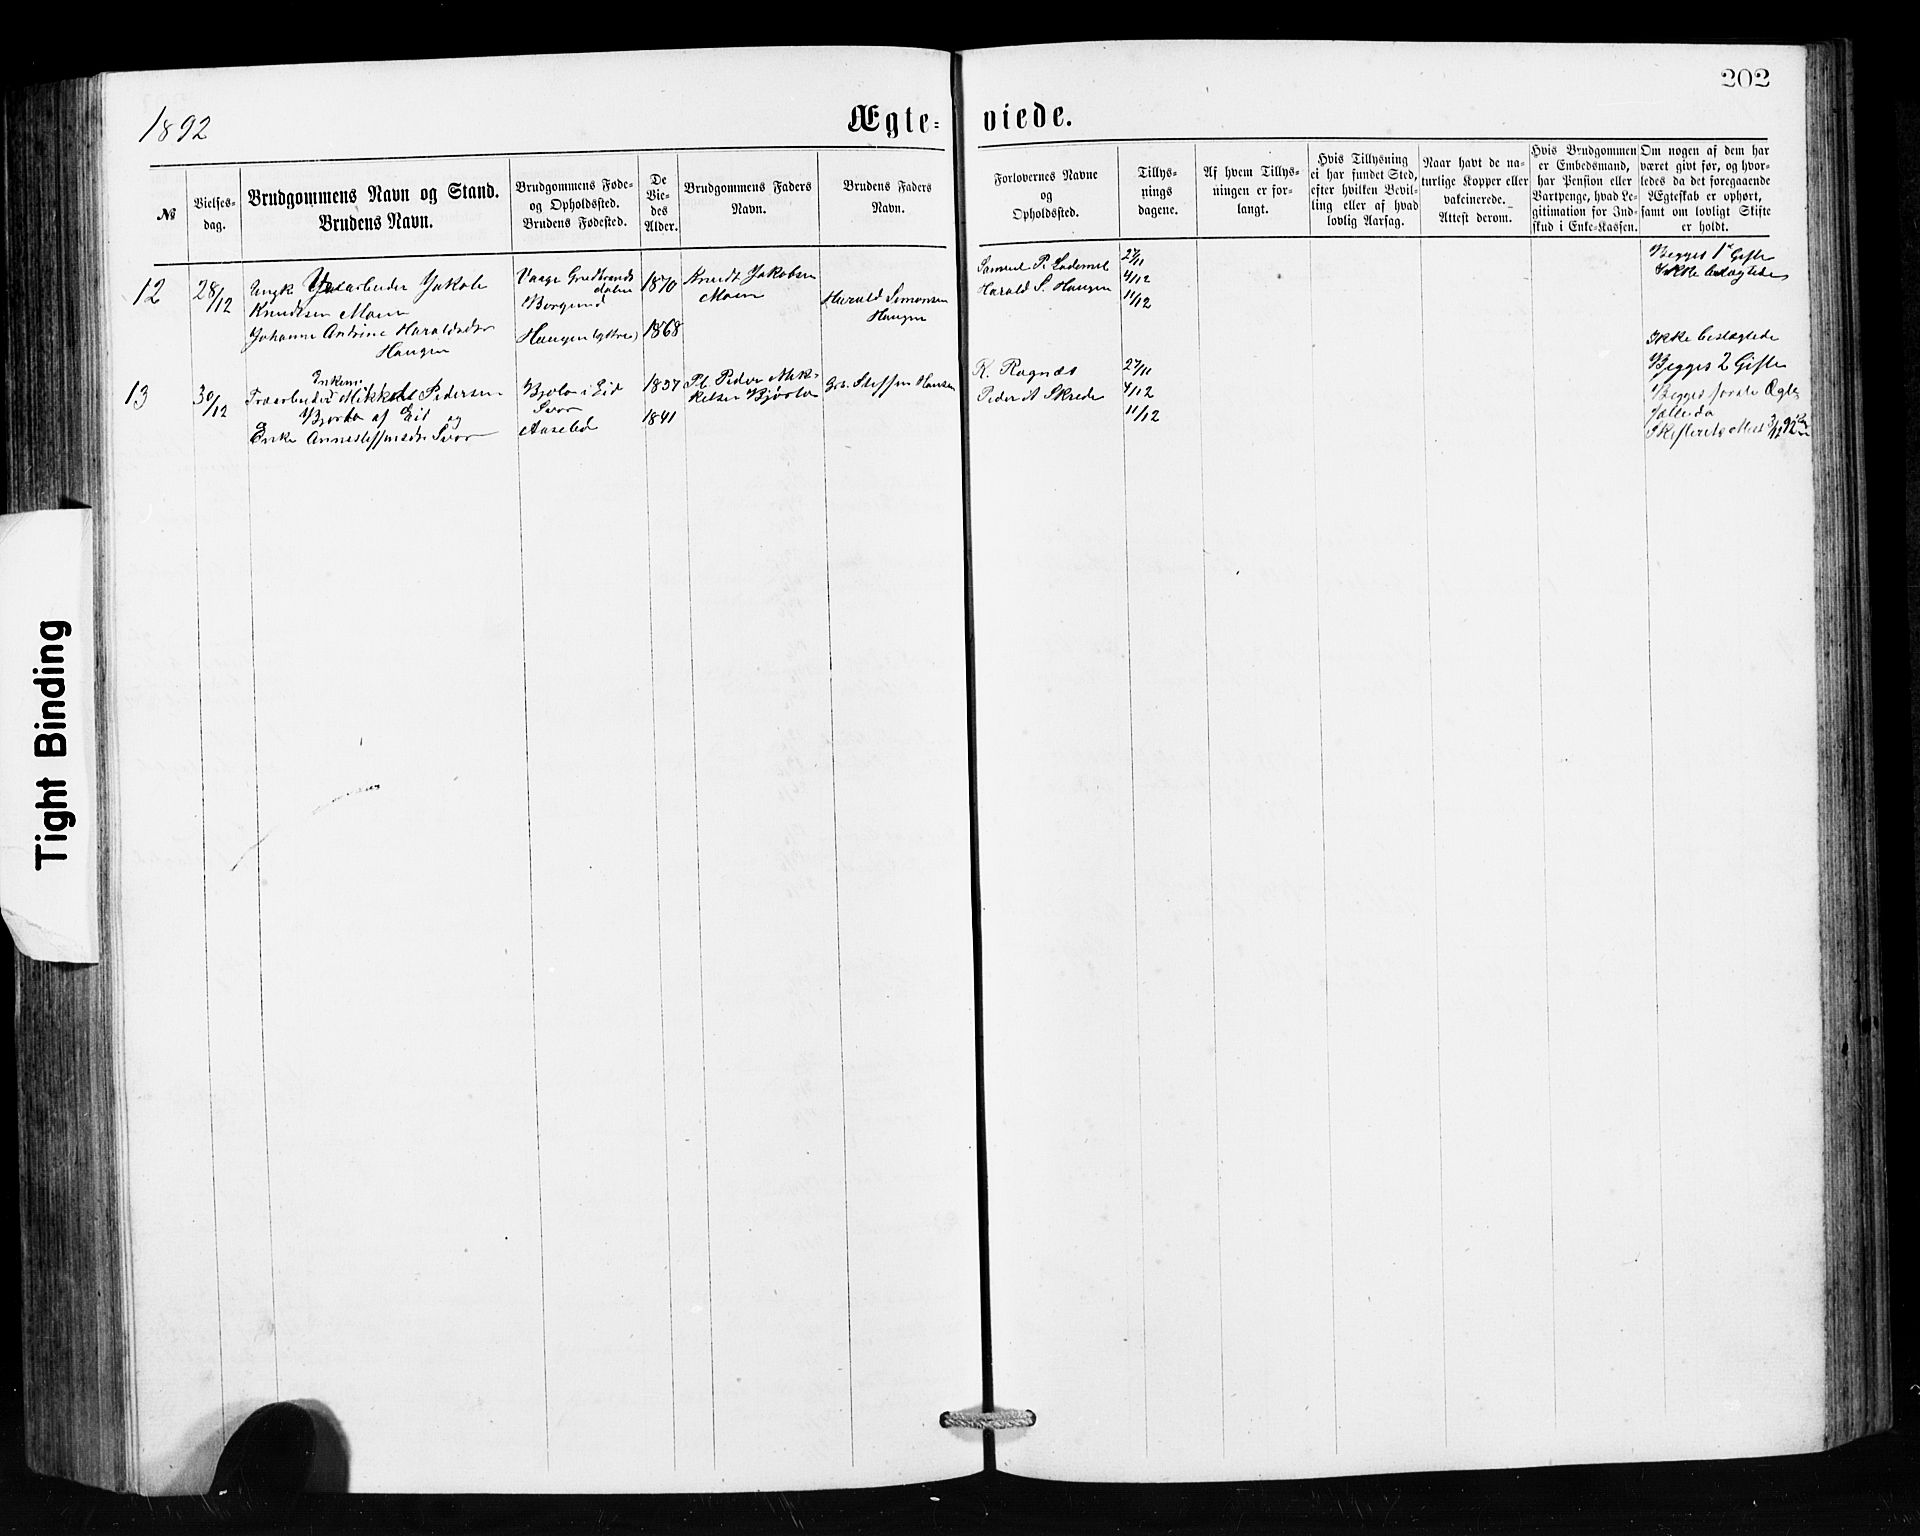 202
1892
Ægte- viede.
№
Vielses-
dag.
Brudgommens Navn og Stand.
Brudens Navn.
Brudgommens Føde-
og Opholdssted.
Brudens Fødested.
De
Vie-
des
Alder.
Brudgommens Faders
Navn.
Brudens Faders
Navn.
Forlovernes Navne
og
Opholdssted.
Tillys-
nings
dagene.
Af hvem Tillys-
ningen er for-
langt.
Hvis Tillysning
ei har fundet Sted,
efter hvilken Bevil-
ling eller af hvad
lovlig Aarsag.
Naar havt de na-
turlige Kopper eller
vakcinerede.
Attest derom.
Hvis Brudgommen
er Embedsmand,
har Pension eller
Vartpenge, hvad Le-
gitimation for Ind-
skud i Enke-Kassen.
Om nogen af dem har
været givt før, og hvor-
ledes da det foregaaende
Ægteskab er ophørt,
samt om lovligt Skifte
er holdt.
12
28/12
Ungk arbeider Jakob
Knudtsen Moen
Johanne Antrine Haraldsdtr
Haugen
Vaage Gudbrands
dalen
Borgund
Haugen
1870
1868
Knudt Jakobsen
Moen
Harald Simonsen
Haugen
Samuel P.
Harald S. Haugen
27/11
4/12
11/12
Begges 1ste Gifte
Ikke beslægtede
13
30/12
Enkem.
Træarbeider Mikkel Pedersen
Bjørlo af Eid og
Enke Anne Steffensdtr Svor
Bjørlo i Eid
Svor
Aasebø
1837
1841
Pl. Peder Mik-
kelsen Bjørlo
Grb. Steffen Hansen
K. Ragnæs
Peder A Skrede
27/11
4/12
11/12
Ikke beslægtede
Begges 2 Gifte
Begges første Ægte
fælle dø
Skifterets Attest 3/12 92
Tight Binding